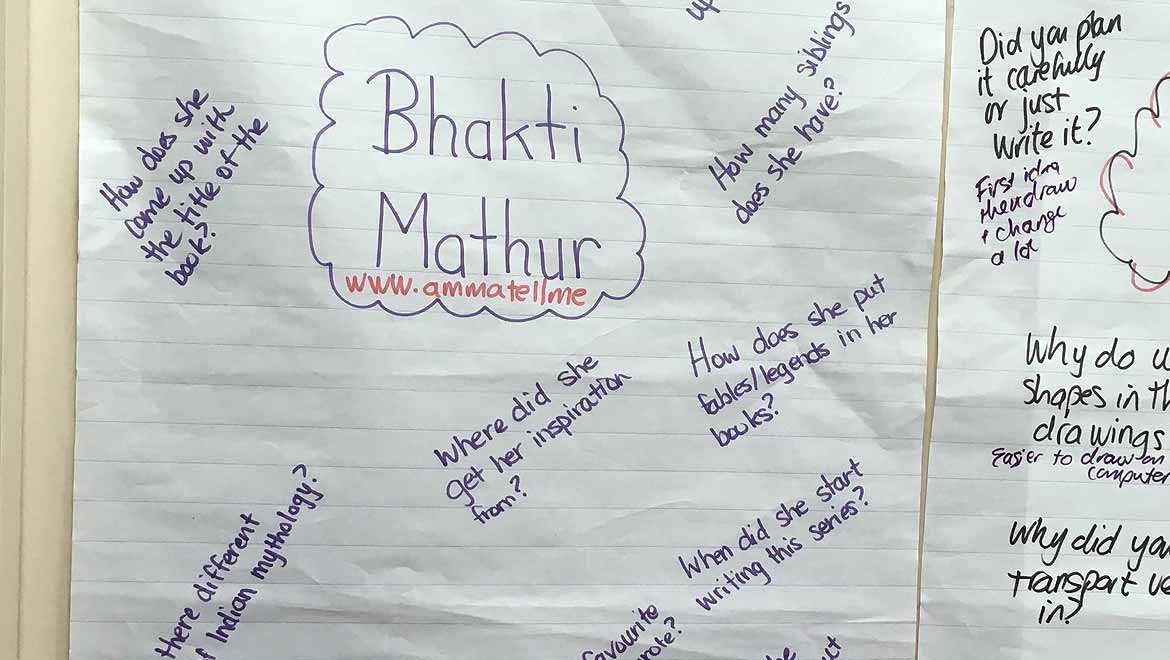 Bhakti
Mathur
www.ammatellme
How does she
come up with
the title of the
book?
up
How many siblings
does she have?
How does she put
fables/legends in her
books?
Where did she
get her inspiration
from?
When did she start
writing this series?
there different
f Indian mythology?
favourite
Did you plan
it carefully
or just
write it?
First idea
then draw
+ change
a lot
Why do
shapes in th
drawings
Easier to draw on
computer
Why did you
transport ve
in?